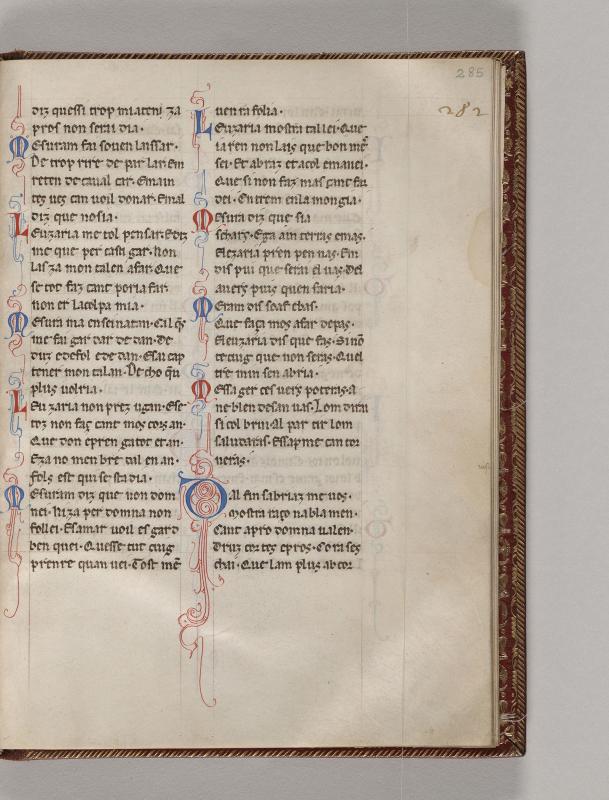 285
282
diz quessi trop mi ateni za
pros non serai dia.
Mesuram fai soven laissar.
De trop rire de par lar Em
reten de caval car. Emain
tes ves can voil donar. Emal
diz que nosia.
Leuzaria me tol pensar. Ediz
me que per casti gar. Non
las za mon talen afar. Que
se tot faz tant poria far
non er la colpa mia.
Mesura ma enseinatm. Cil q̄
me fai gar dar de dan. De
duz edefol e de dan. Esai cap
tener mon talan. De cho q̄u
plus volria.
Leu zaria non prez ugan. Ese
toz non faç tant mos cors an.
Que don epren gaitot er an.
Eza no men bre tal en an.
fols est qui se sta dia.
Mesuram diz que von dom
nei. Ni za per domna non
follei. Esamar voil es gard
ben quei. Quesse tut cuig
penre quan vei. Tost me
ven ra folia.
Leuzaria mostra tal lei. Que
ia ren non lais que bon me
sei. Et abraz et acol e manei.
Que si non faz mas çant fas
dei. Entrem enla mongia.
Mesura diz que sia
schars. Ega ain terras emas.
Elezaria pren pen nas. Em
dis pui que serai el vas. Del
avers puis quen faria.
Meram dis soaf e bas.
Que faça mos afar de pas.
Eleuzaria dis que fas. Si nō
te cuig que non seras. Quel
tre min sen abria.
Messa ger ces vers poteras. A
ne blen desan vas. Lom dirai
si col brui. Al par tir lom
saludaras. Essap me can tor
neras.
Dal fin sabriaz me vos.
mostra raço nabla men.
Cant apro domna valen.
Druz cortes epros. Cora ses
chai. Que lam plus ab cor